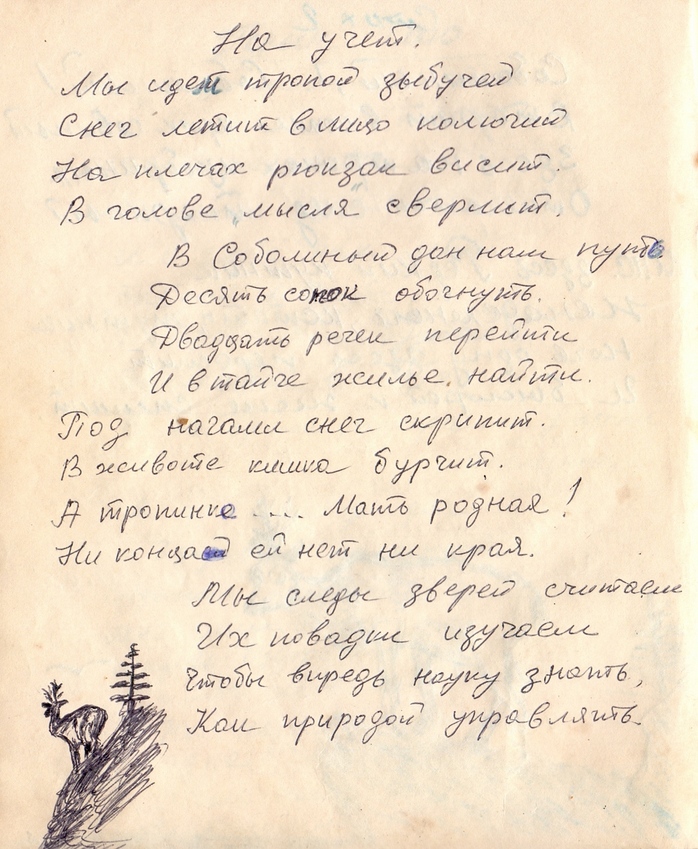 На учет.
Мы идем тропой зыбучей
Снег летит в лицо колючий
На плечах рюкзак висит.
В голове „мысля" сверлит.
В Соболиный дан нам путь
Десять сопок обогнуть.
Двадцать речек перейти
И в тайге жилье найти.
Под ногами снег скрипит.
В животе кишка бурчит.
А тропинке .... Мать родная!
Ни конца ей нет ни края.
Мы следы зверей считаем
Их повадки изучаем
Чтобы впредь науку знать,
Как природой управлять.